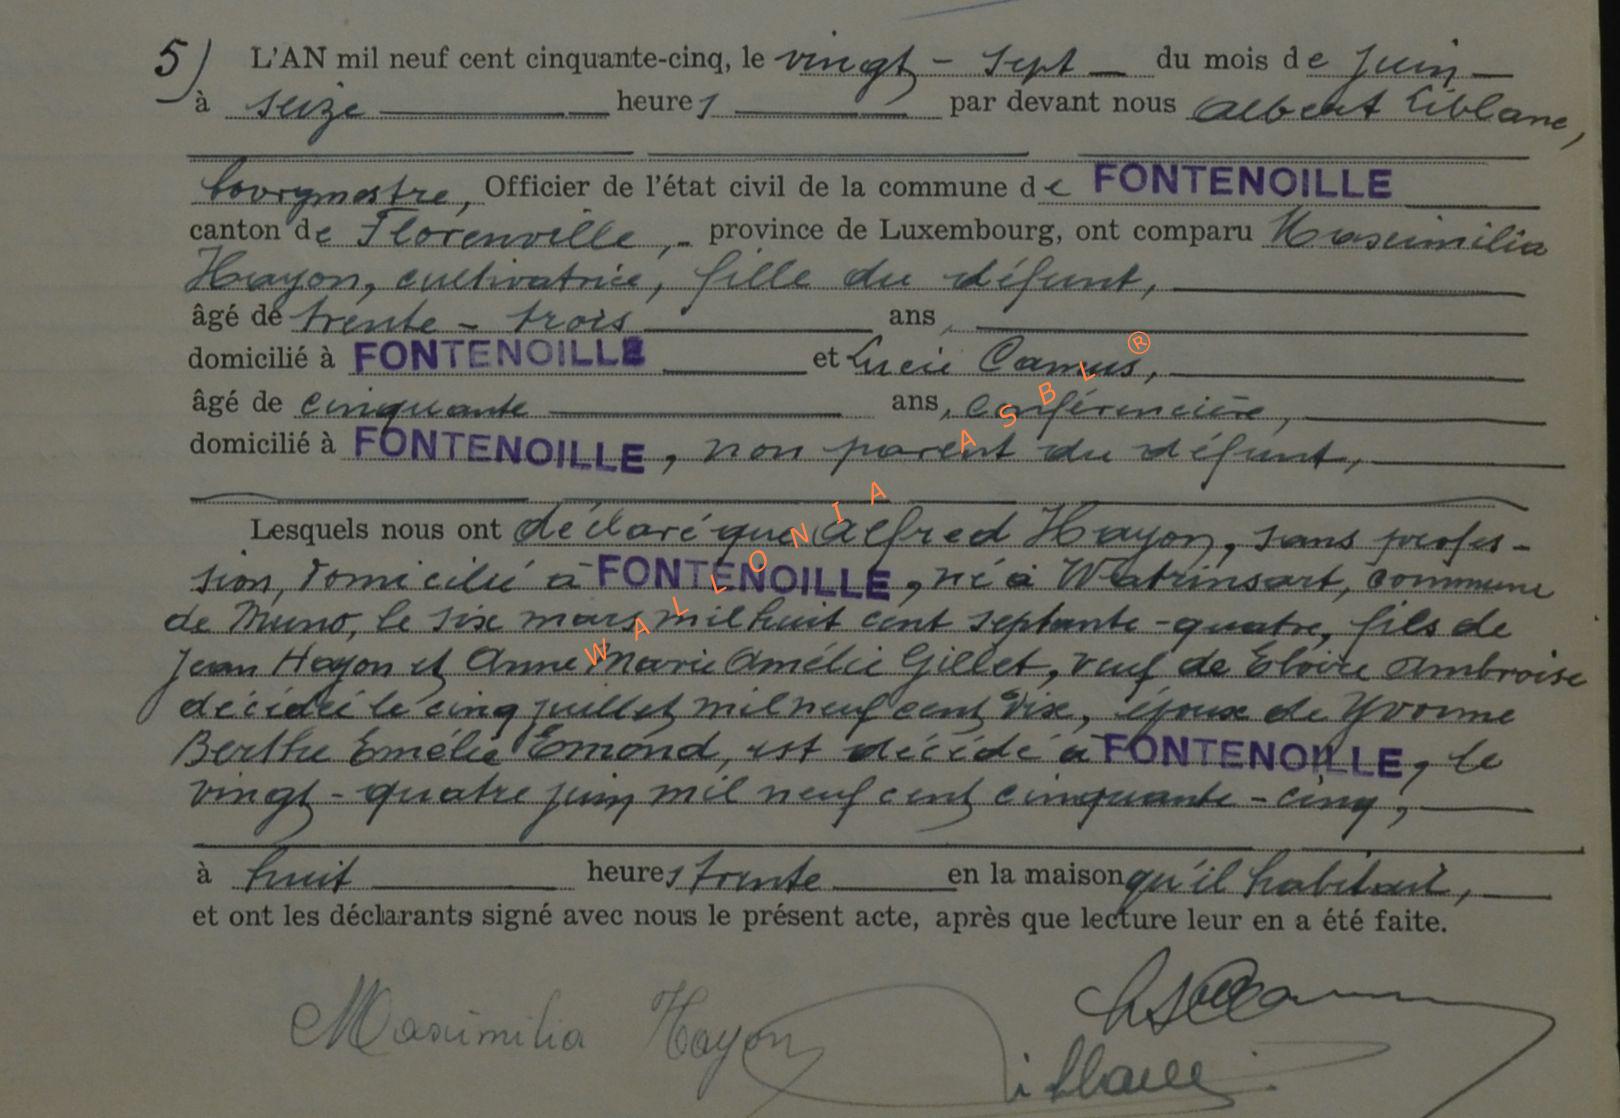 5) L'AN mil neuf cent cinquante-cinq, le vingt-sept du mois de juin
à seize heures par devant nous Albert Liblanc,
bourgmestre, Officier de l'état civil de la commune de FONTENOILLE
canton de Florenville, province de Luxembourg, ont comparu Maximilia
Hayon, cultivatrice, fille du défunt,
âgé de trente-trois ans,
domicilié à FONTENOILLE et Lucie Camus,
âgé de cinquante ans,
domicilié à FONTENOILLE, non parent du défunt,
Lesquels nous ont déclaré que Alfred Hayon, sans profes-
sion, domicilié à FONTENOILLE, né à Watrinsart, commune
de Muno, le six mars mil huit cent septante-quatre, fils de
Jean Hayon et Anne Marie Amélie Gillet, veuf de Ambroise
décédée le cinq juillet mil neuf cent dix, époux de Yvonne
Berthe Emélie Emond, est décédé à FONTENOILLE, le
vingt-quatre juin mil neuf cent cinquante-cinq,
à huit heures trente en la maison qu'il habitait,
et ont les déclarants signé avec nous le présent acte, après que lecture leur en a été faite.
Maximilia Hayon
Liblanc
WALLONIA ASBL ®